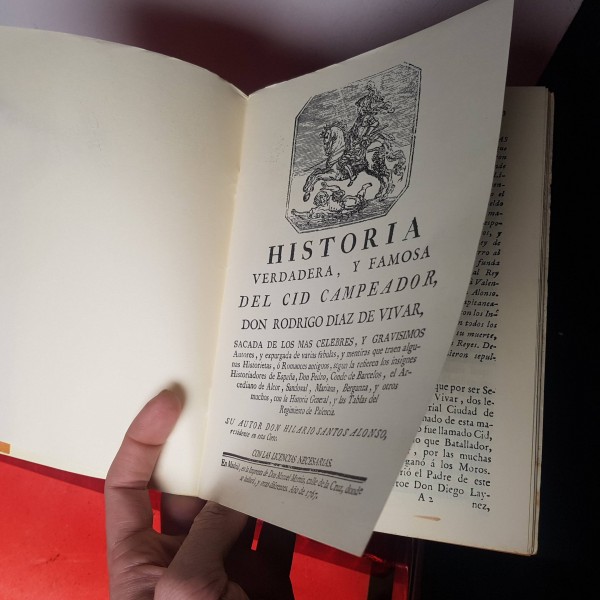 HISTORIA
VERDADERA, Y FAMOSA
DEL CID CAMPEADOR,
DON RODRIGO DIAZ DE VIVAR,
SACADA DE LOS MAS CELEBRES, Y GRAVISIMOS
Autores, y expurgada de varias fabulas, y mentiras que traen algu-
nas Historietas, ò Romances antiguos, segun la refieren los insignes
Historiadores de España, Don Pedro, Conde de Barcelos, el Ar-
cediano de Alcor, Sandoval, Mariana, Berganza, y otros
muchos, con la Historia General, y las Tablas del
Regimiento de Palencia.
SU AUTOR DON HILARIO SANTOS ALONSO,
residente en esta Corte.
CON LAS LICENCIAS NECESARIAS.
En Madrid, en la Imprenta de Don Manuel Martin, calle de la Cruz, donde
se hallará, y otras diferentes. Año de 1767.
Rey de
funda
Valen-
Alonso.
los In
todos los
su muerte,
Reyes. De-
sepul-
que por ser Se-
Vivar, dos le-
Ciudad de
nado de esta ma-
fue llamado Cid,
que Batallador,
, por las muchas
ganó á los Moros.
el Padre de este
roe Don Diego Lay-
A 2 nez,